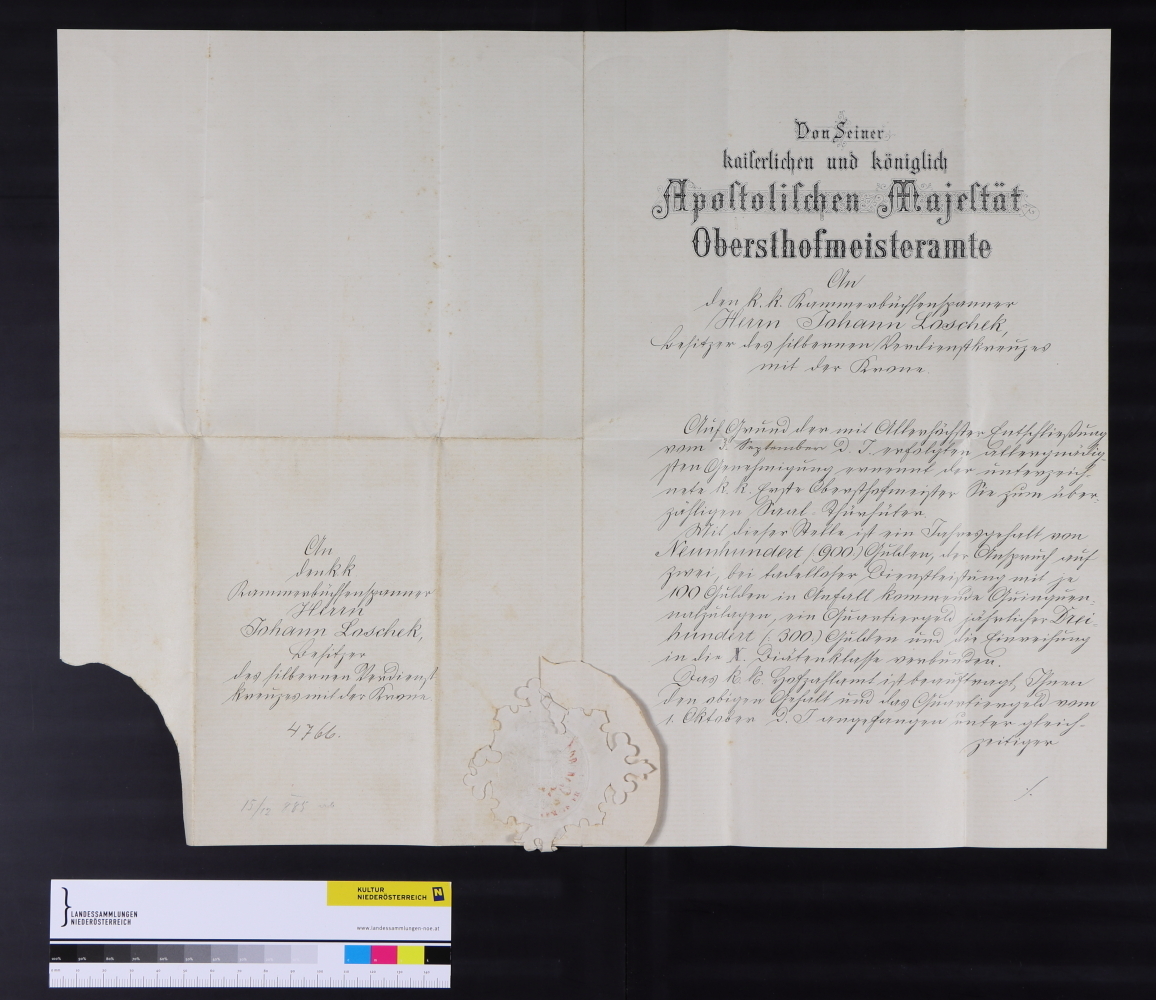 Von Seiner
kaiserlichen und königlich
Apostolischen Majestät
Obersthofmeisteramte
An
den k. k. Kammerbüchsenspanner
Herrn Johann Loschek,
Besitzer des silbernen Verdienstkreuzes
mit der Krone.
Auf Grund der mit Allerhöchster Entschließung
vom 2. September d. J. erfolgten allergnädig-
sten Genehmigung ernennt der unterzeich-
nete k. k. Erste Obersthofmeister Sie zum über-
zähligen Saal-Thürhüter.
Mit dieser Stelle ist ein Jahresgehalt von
Neunhundert (900) Gulden, der Anspruch auf
zwei, bei tadelloser Dienstleistung mit je
100 Gulden in Anfall kommende Quinquen-
nalzulagen, ein Quartiergeld jährlicher Drei-
hundert (300.) Gulden und die Einreihung
in die X. Diätenklasse verbunden.
Das k. k. Hofzahlamt ist beauftragt, Ihnen
den obigen Gehalt und das Quartiergeld vom
1. Oktober d. J angefangen unter gleich-
zeitiger
./.
An
den k k
Kammerbüchsenspanner
Herrn
Johann Loschek,
Besitzer
des silbernen Verdienst
kreuzes mit der Krone.
4766.
LANDESSAMMLUNGEN
NIEDERÖSTERREICH
KULTUR
NIEDERÖSTERREICH
N
www.landessammlungen-noe.at